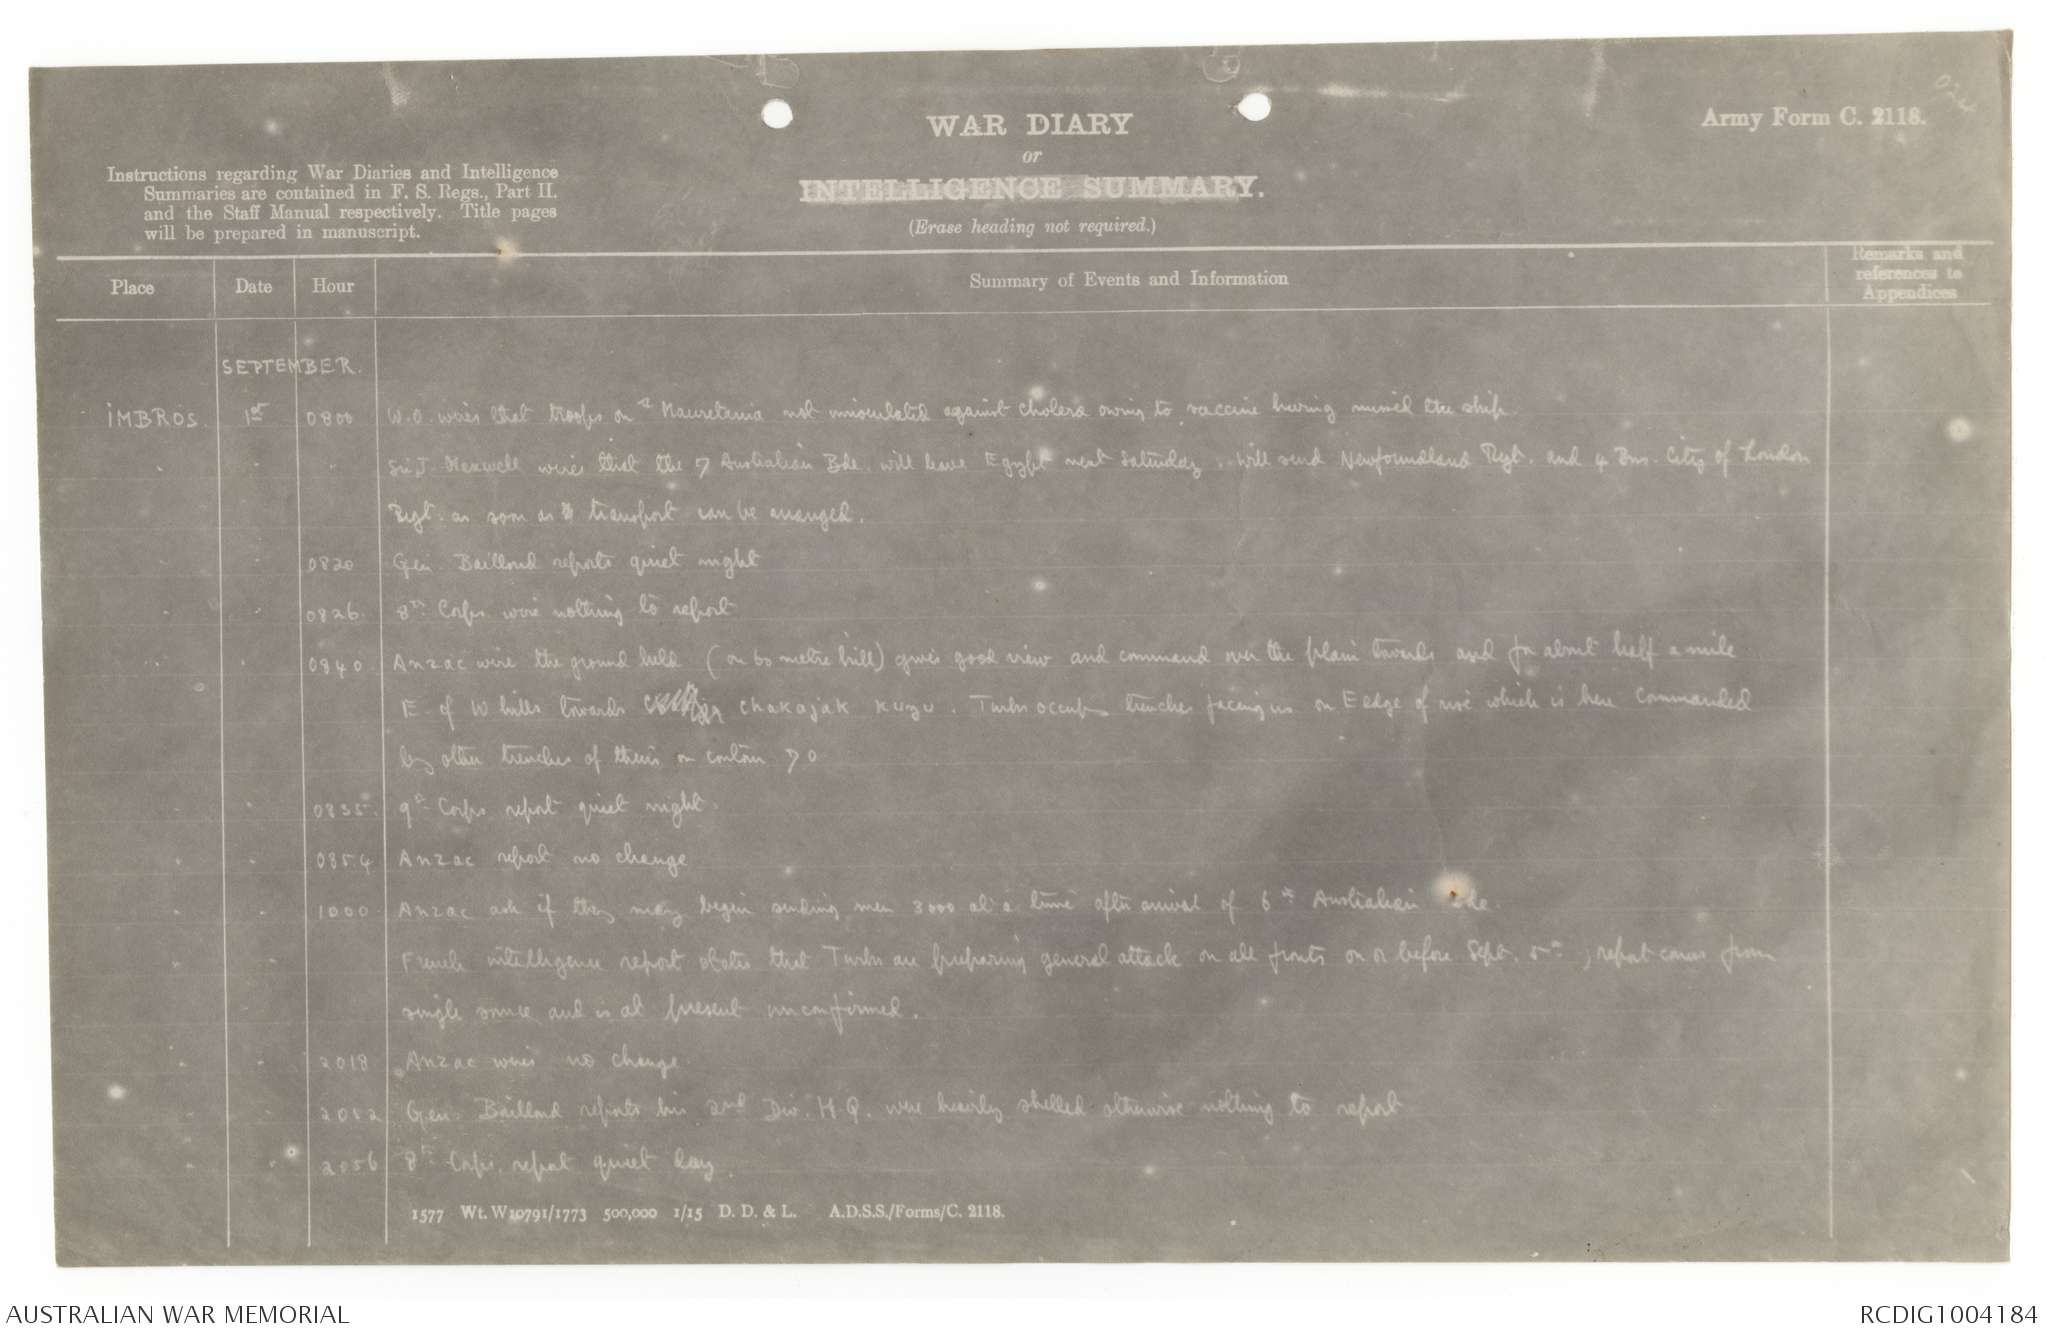 Army Form C. 2118.
WAR DIARY
or
INTELLIGENCE SUMMARY.
(Erase heading not required.)
Instructions regarding War Diaries and Intelligence
Summaries are contained in F. S. Regs., Part II.
and the Staff Manual respectively. Title pages
will be prepared in manuscript.
Place Date Hour Summary of Events and Information Remarks and references to Appendices
SEPTEMBER.
IMBROS. 1st 0800 W.O. wires that troops on Mauretania not innoculated against cholera owing to vaccine having missed the ship.
Sir J. Maxwell wires that the 7 Australian Bde. will leave Egypt next Saturday. Will send Newfoundland Regt. and 4 Bns. City of London
Regt. as soon as transport can be arranged.
0820 Gen. Bailloud reports quiet night
0826. 8th Corps wire nothing to report
0840. Anzac wire the ground held (on 60 metre hill) gives good view and command over the plain towards and for about half a mile
E. of W hills towards CHAKAJAK KUYU. Turks occupy trenches facing us on E edge of rise which is here commanded
by other trenches of theirs on contour 70
0835. 9th Corps report quiet night.
0854 Anzac report no change
1000 Anzac ask if they may begin sending men 3000 at a time after arrival of 6th Australian Bde.
French intelligence report states that Turks are preparing general attack on all fronts on or before Sept. 5th; report comes from
single source and is at present unconfirmed.
2018 Anzac wires no change.
2052 Gen. Bailloud reports his 2nd Div. H.Q. were heavily shelled otherwise nothing to report
2056 8th Corps. report quiet day.
1577 Wt. W10791/1773 500,000 1/15 D. D. & L. A.D.S.S./Forms/C. 2118.
AUSTRALIAN WAR MEMORIAL
RCDIG1004184